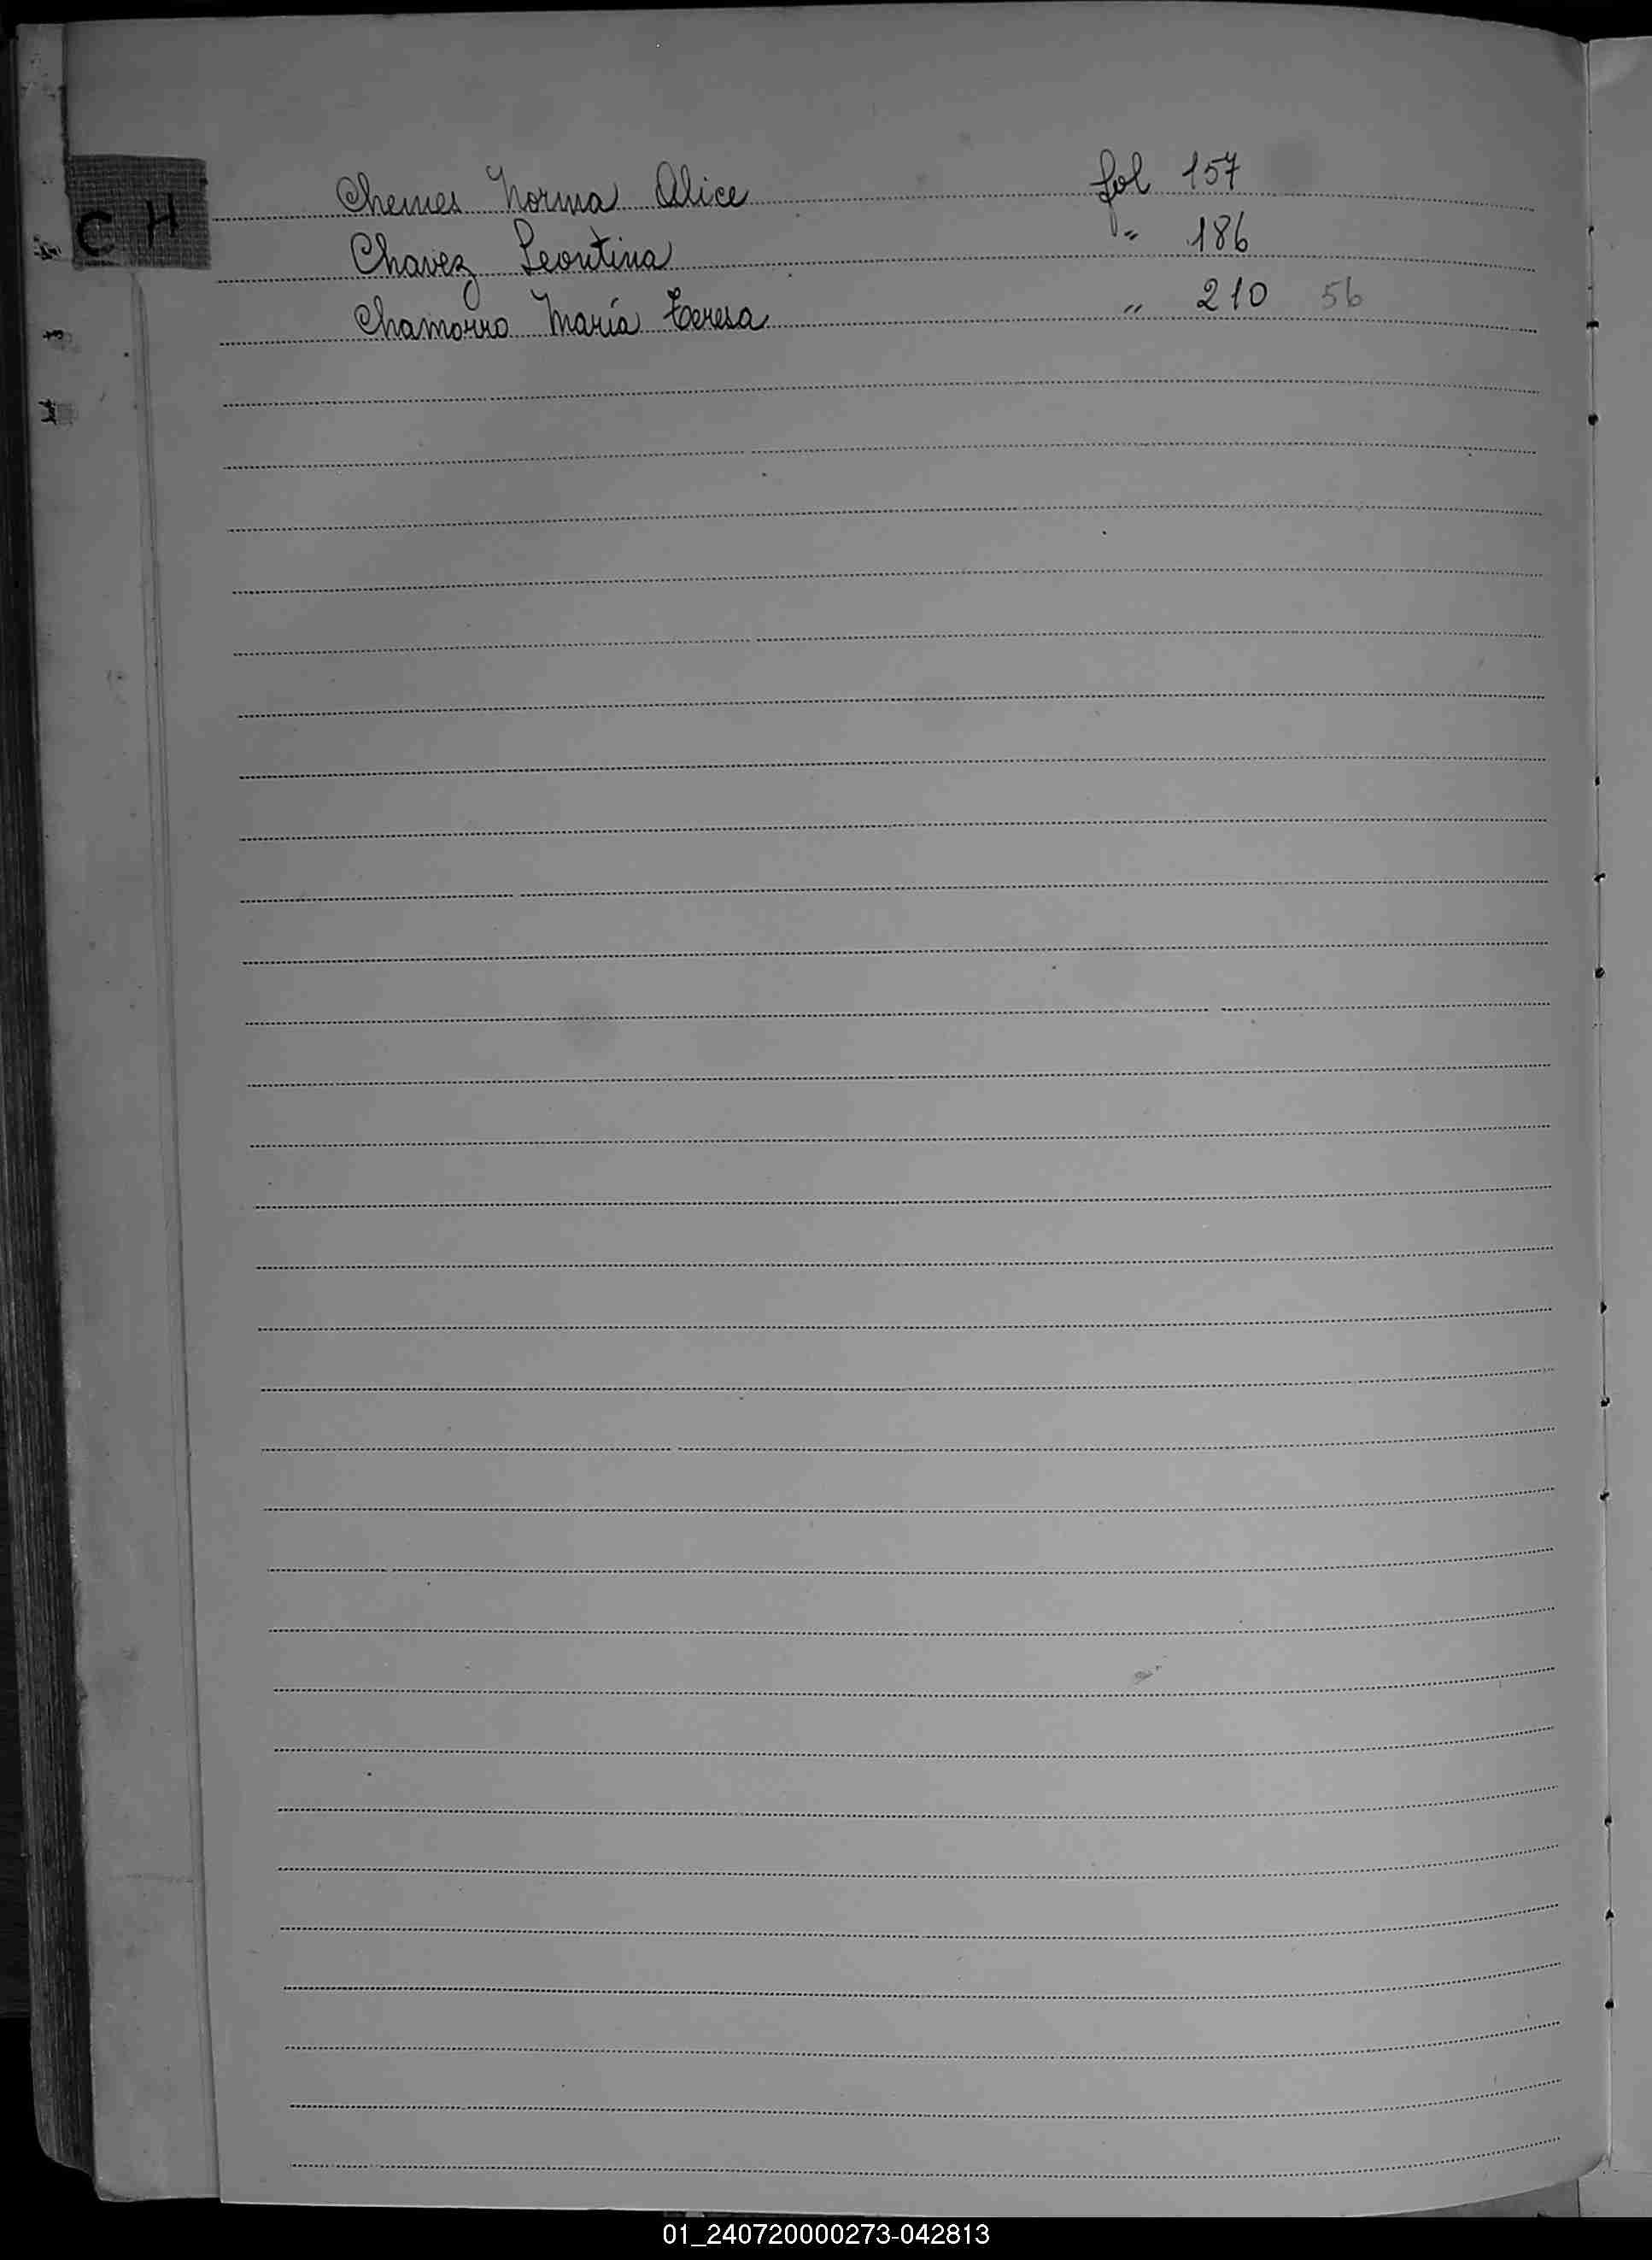 C H
Chemes Norma Alice fol 157
Chavez Leontina " 186
Chamorro María Teresa " 210 56
01_240720000273-042813